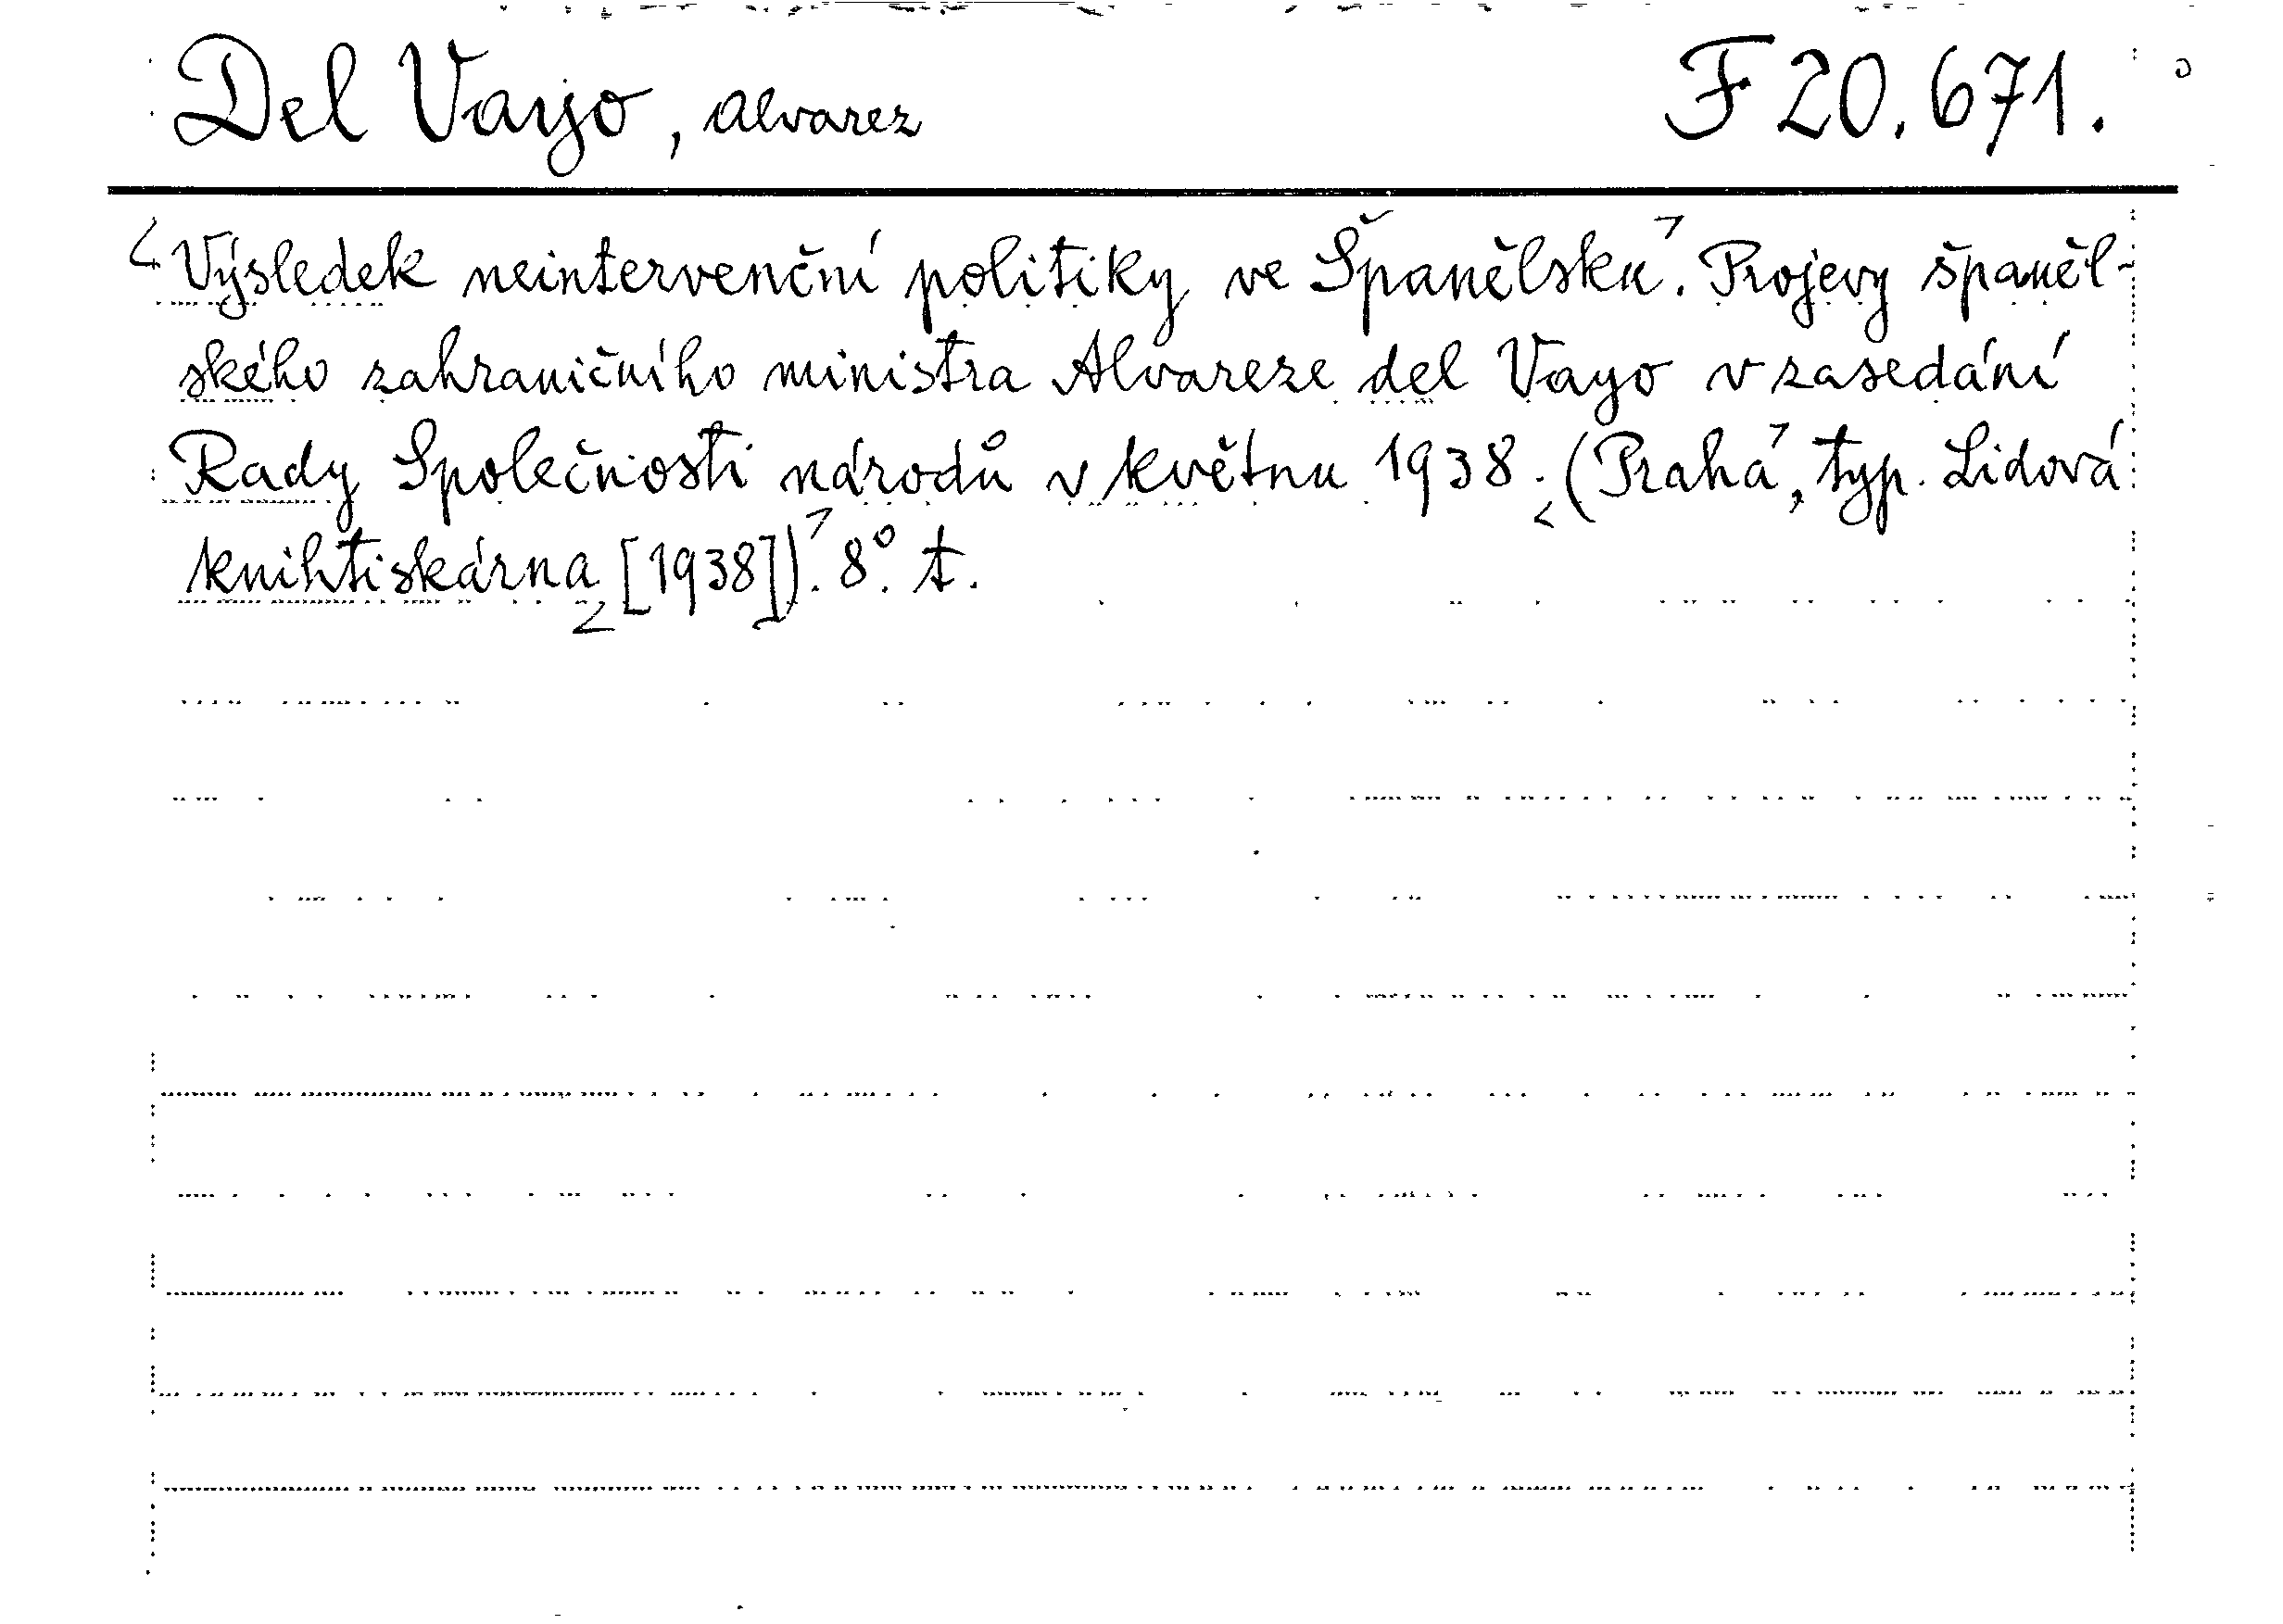 Del Vayo, Alvarez F 20.671.
Výsledek neintervenční politiky ve Španělsku. Projevy španěl-
ského zahraničního ministra Alvareze del Vayo v zasedání
Rady Společnosti národů v květnu 1938. (Praha, typ. Lidová
knihtiskárna [1938]). 8°. t.